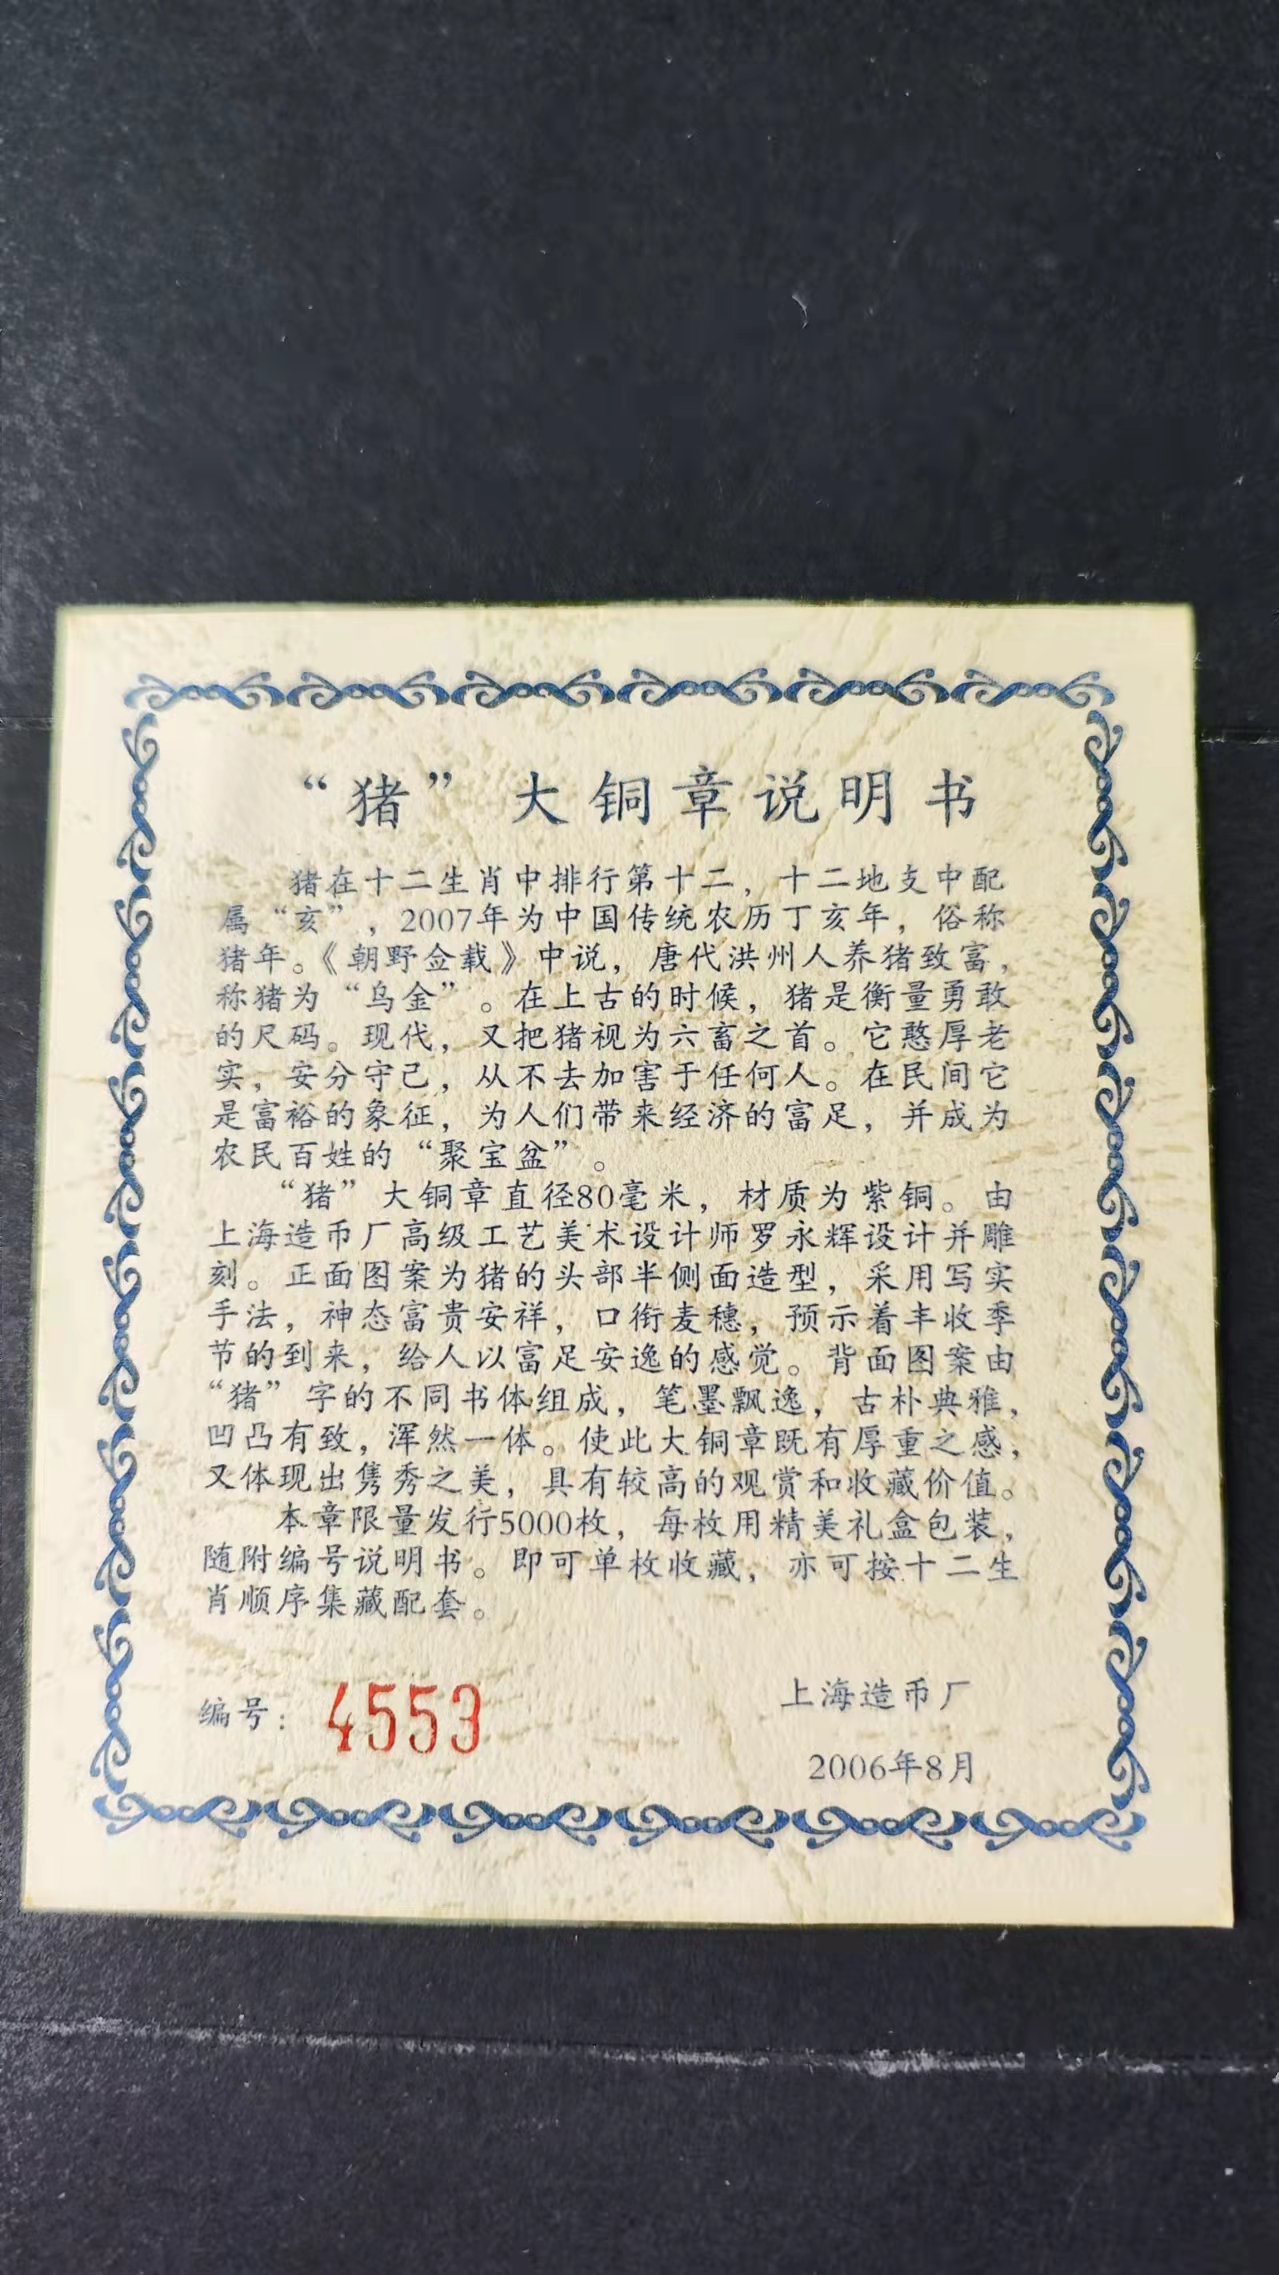 “猪”大铜章说明书
猪在十二生肖中排行第十二，十二地支中配
属“亥”，2007年为中国传统农历丁亥年，俗称
猪年。《朝野佥载》中说，唐代洪州人养猪致富，
称猪为“乌金”。在上古的时候，猪是衡量勇敢
的尺码。现代，又把猪视为六畜之首。它憨厚老
实，安分守己，从不去加害于任何人。在民间它
是富裕的象征，为人们带来经济的富足，并成为
农民百姓的“聚宝盆”。
“猪”大铜章直径80毫米，材质为紫铜。由
上海造币厂高级工艺美术设计师罗永辉设计并雕
刻。正面图案为猪的头部半侧面造型，采用写实
手法，神态富贵安祥，口衔麦穗，预示着丰收季
节的到来，给人以富足安逸的感觉。背面图案由
“猪”字的不同书体组成，笔墨飘逸，古朴典雅，
凹凸有致，浑然一体。使此大铜章既有厚重之感，
又体现出隽秀之美，具有较高的观赏和收藏价值。
本章限量发行5000枚，每枚用精美礼盒包装，
随附编号说明书。即可单枚收藏，亦可按十二生
肖顺序集藏配套。
编号：4553
上海造币厂
2006年8月